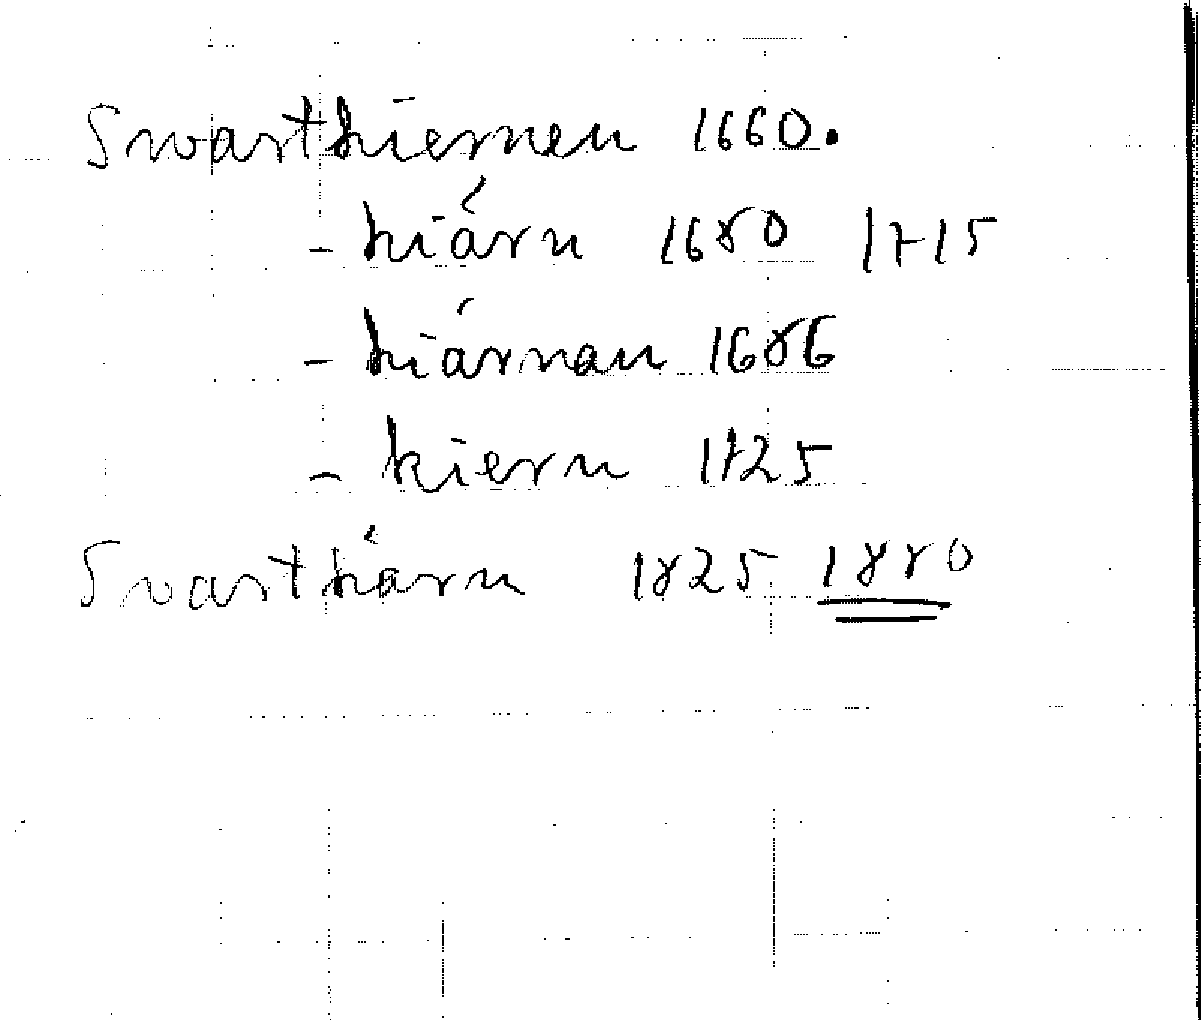 Swartkiernen 1660.
- kiärn 1680 1715
- kiärnan 1686
- kiern 1725
Svartkärn 1825 1880